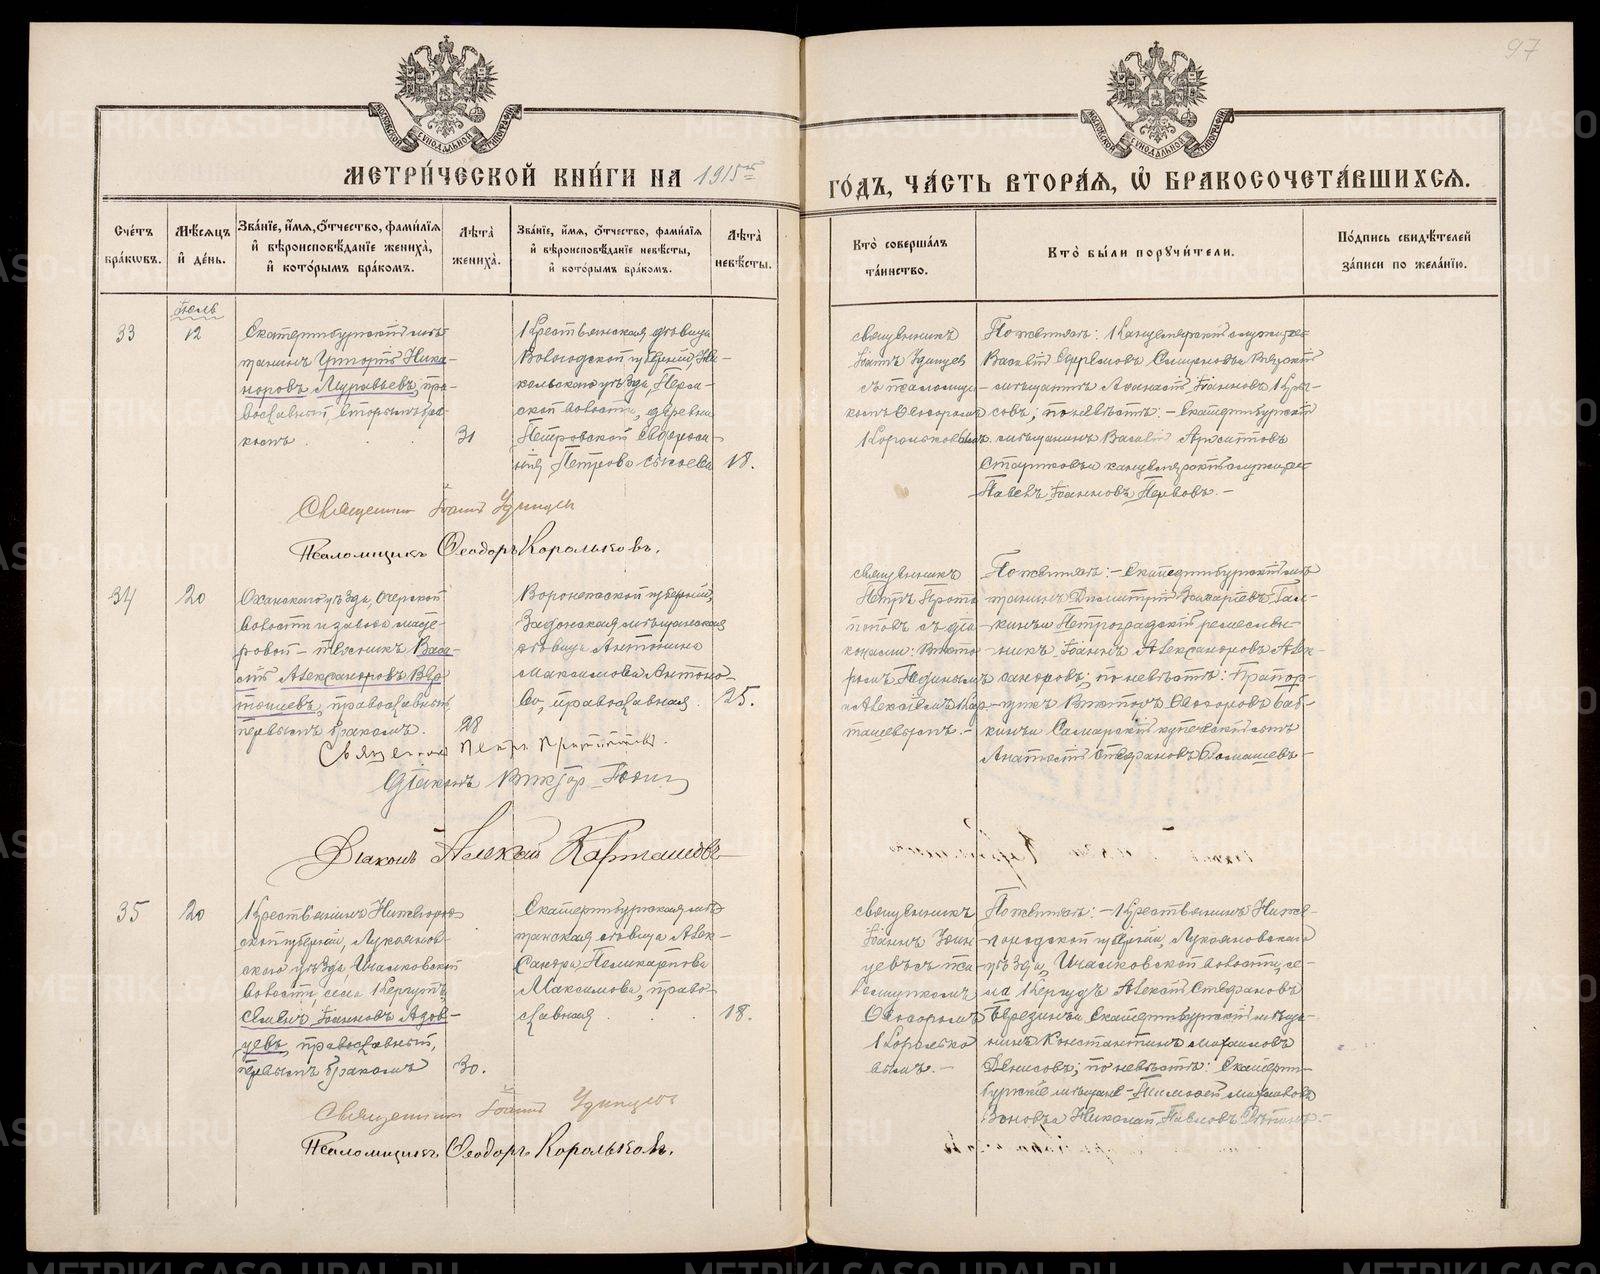 97
МЕТРИ́ЧЕСКОЙ КНИ́ГИ НА 1915й
ГО́ДЪ, ЧА́СТЬ ВТОРА́Я, Ѡ҆ БРАКОСОЧЕТА́ВШИХСЯ.
Сче́тъ бра́кѡвъ.
Мѣ́сяцъ и҆ де́нь.
Зва́нїе, и҆́мя, ѻ҆́тчество, фами́лїя и҆ вѣроисповѣ́данїе жениха̀, и҆ кото́рымъ бра́комъ.
Лѣ́та жениха̀.
Зва́нїе, и҆́мя, ѻ҆́тчество, фами́лїя и҆ вѣроисповѣ́данїе невѣ́сты, и҆ кото́рымъ бра́комъ.
Лѣ́та невѣ́сты.
Кто̀ соверша́лъ та́инство.
Кто̀ бы́ли порꙋчи́тели.
По́дпись свидѣ́телей за́писи по жела́нїю.
Іюль
33
12
Екатеринбургскій мѣ-
щанинъ Григорій Ника-
норовъ Муравьевъ, пра-
вославный, вторымъ бра-
комъ
31
Крестьянская дѣвица
Вологодской губерніи, Ни-
кольскаго уѣзда,
волости, деревни
Петровской Евфроси-
нія Петрова
18.
священникъ
Іоаннъ Удинцев
съ псаломщи-
комъ Ѳеодоромъ
Корольковымъ.
По женихѣ: Канцелярскій служитель
Василій Ефремовъ Смирновъ и
мѣщанинъ Афанасій Іоанновъ
по невѣстѣ: – Екатеринбургскій
мѣщанинъ Василій
Старковъ и канцелярскій служитель
Павелъ Іоанновъ Первовъ. –
Священник Іоанн Удинцев
Псаломщикъ Ѳеодоръ Корольковъ.
34
20
Оханскаго уѣзда, Очерской
волости и завода масте-
ровой – техникъ Васи-
лій Александровъ
православный,
первымъ бракомъ.
28
Воронежской губерніи,
Задонская мѣщанская
дѣвица Антонина
Максимова Антоно-
ва, православная.
25.
священникъ
Петръ Прото-
поповъ съ діа-
конами: Викто-
ромъ Юдинымъ
и Алексіемъ Кар-
ташевымъ. –
По женихѣ: – Екатеринбургскій мѣ-
щанинъ Димитрій Захаріевъ Гал-
кинъ и Петроградскій ремеслен-
никъ Іоаннъ Александровъ Алек-
сандровъ; по невѣстѣ: Прапор-
щикъ Викторъ Ѳеодоровъ Баб-
кинъ и Самарскій купеческій сынъ
Анатолій Стефановъ Ромашевъ –
Священник Петръ Протопопов.
Діаконъ Викторъ Юдин
Діаконъ Алексій Карташевъ
35
20
Крестьянинъ Нижегород-
ской губерніи, Лукоянов-
скаго уѣзда, Ичалковской
волости, села Кергудъ,
Семенъ Іоанновъ Адов-
цевъ, православный,
первымъ бракомъ
30.
Екатеринбургская мѣ-
щанская дѣвица Алек-
сандра Поликарпова
Максимова, право-
славная
18.
священникъ
Іоаннъ Удин-
цевъ съ пса-
ломщикомъ
Ѳеодоромъ
Королько-
вымъ. –
По женихѣ: – Крестьянинъ Ниже-
городской губерніи, Лукояновскаго
уѣзда, Ичалковской волости, се-
ла Кергудъ Алексій Стефановъ
Березинъ и Екатеринбургскій мѣща-
нинъ Константинъ Михаиловъ
Денисовъ; по невѣстѣ: Екатерин-
бургскіе мѣщане – Тимофей Михаиловъ
Зоновъ и Николай Павловъ
Священник Іоанн Удинцев
Псаломщикъ Ѳеодоръ Корольковъ.
METRIKI.GASO-URAL.RU